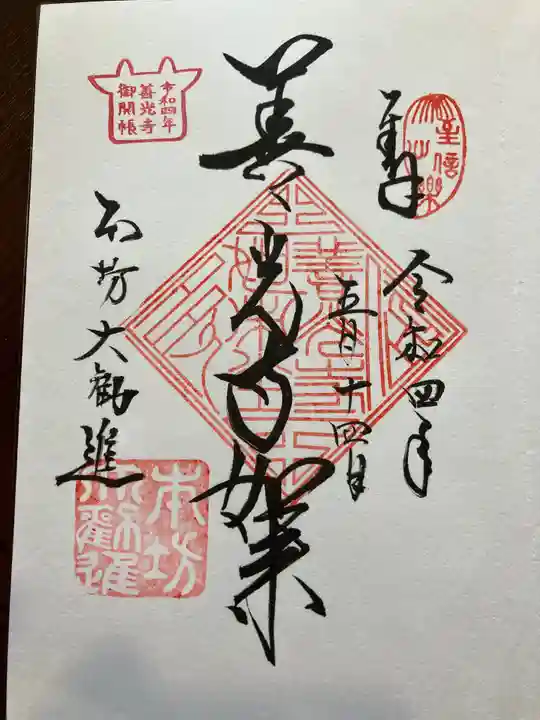 奉拝
令和四年
五月十四日
善光寺如来
本坊大勧進
令和四年
善光寺
御開帳
本坊
大勧進